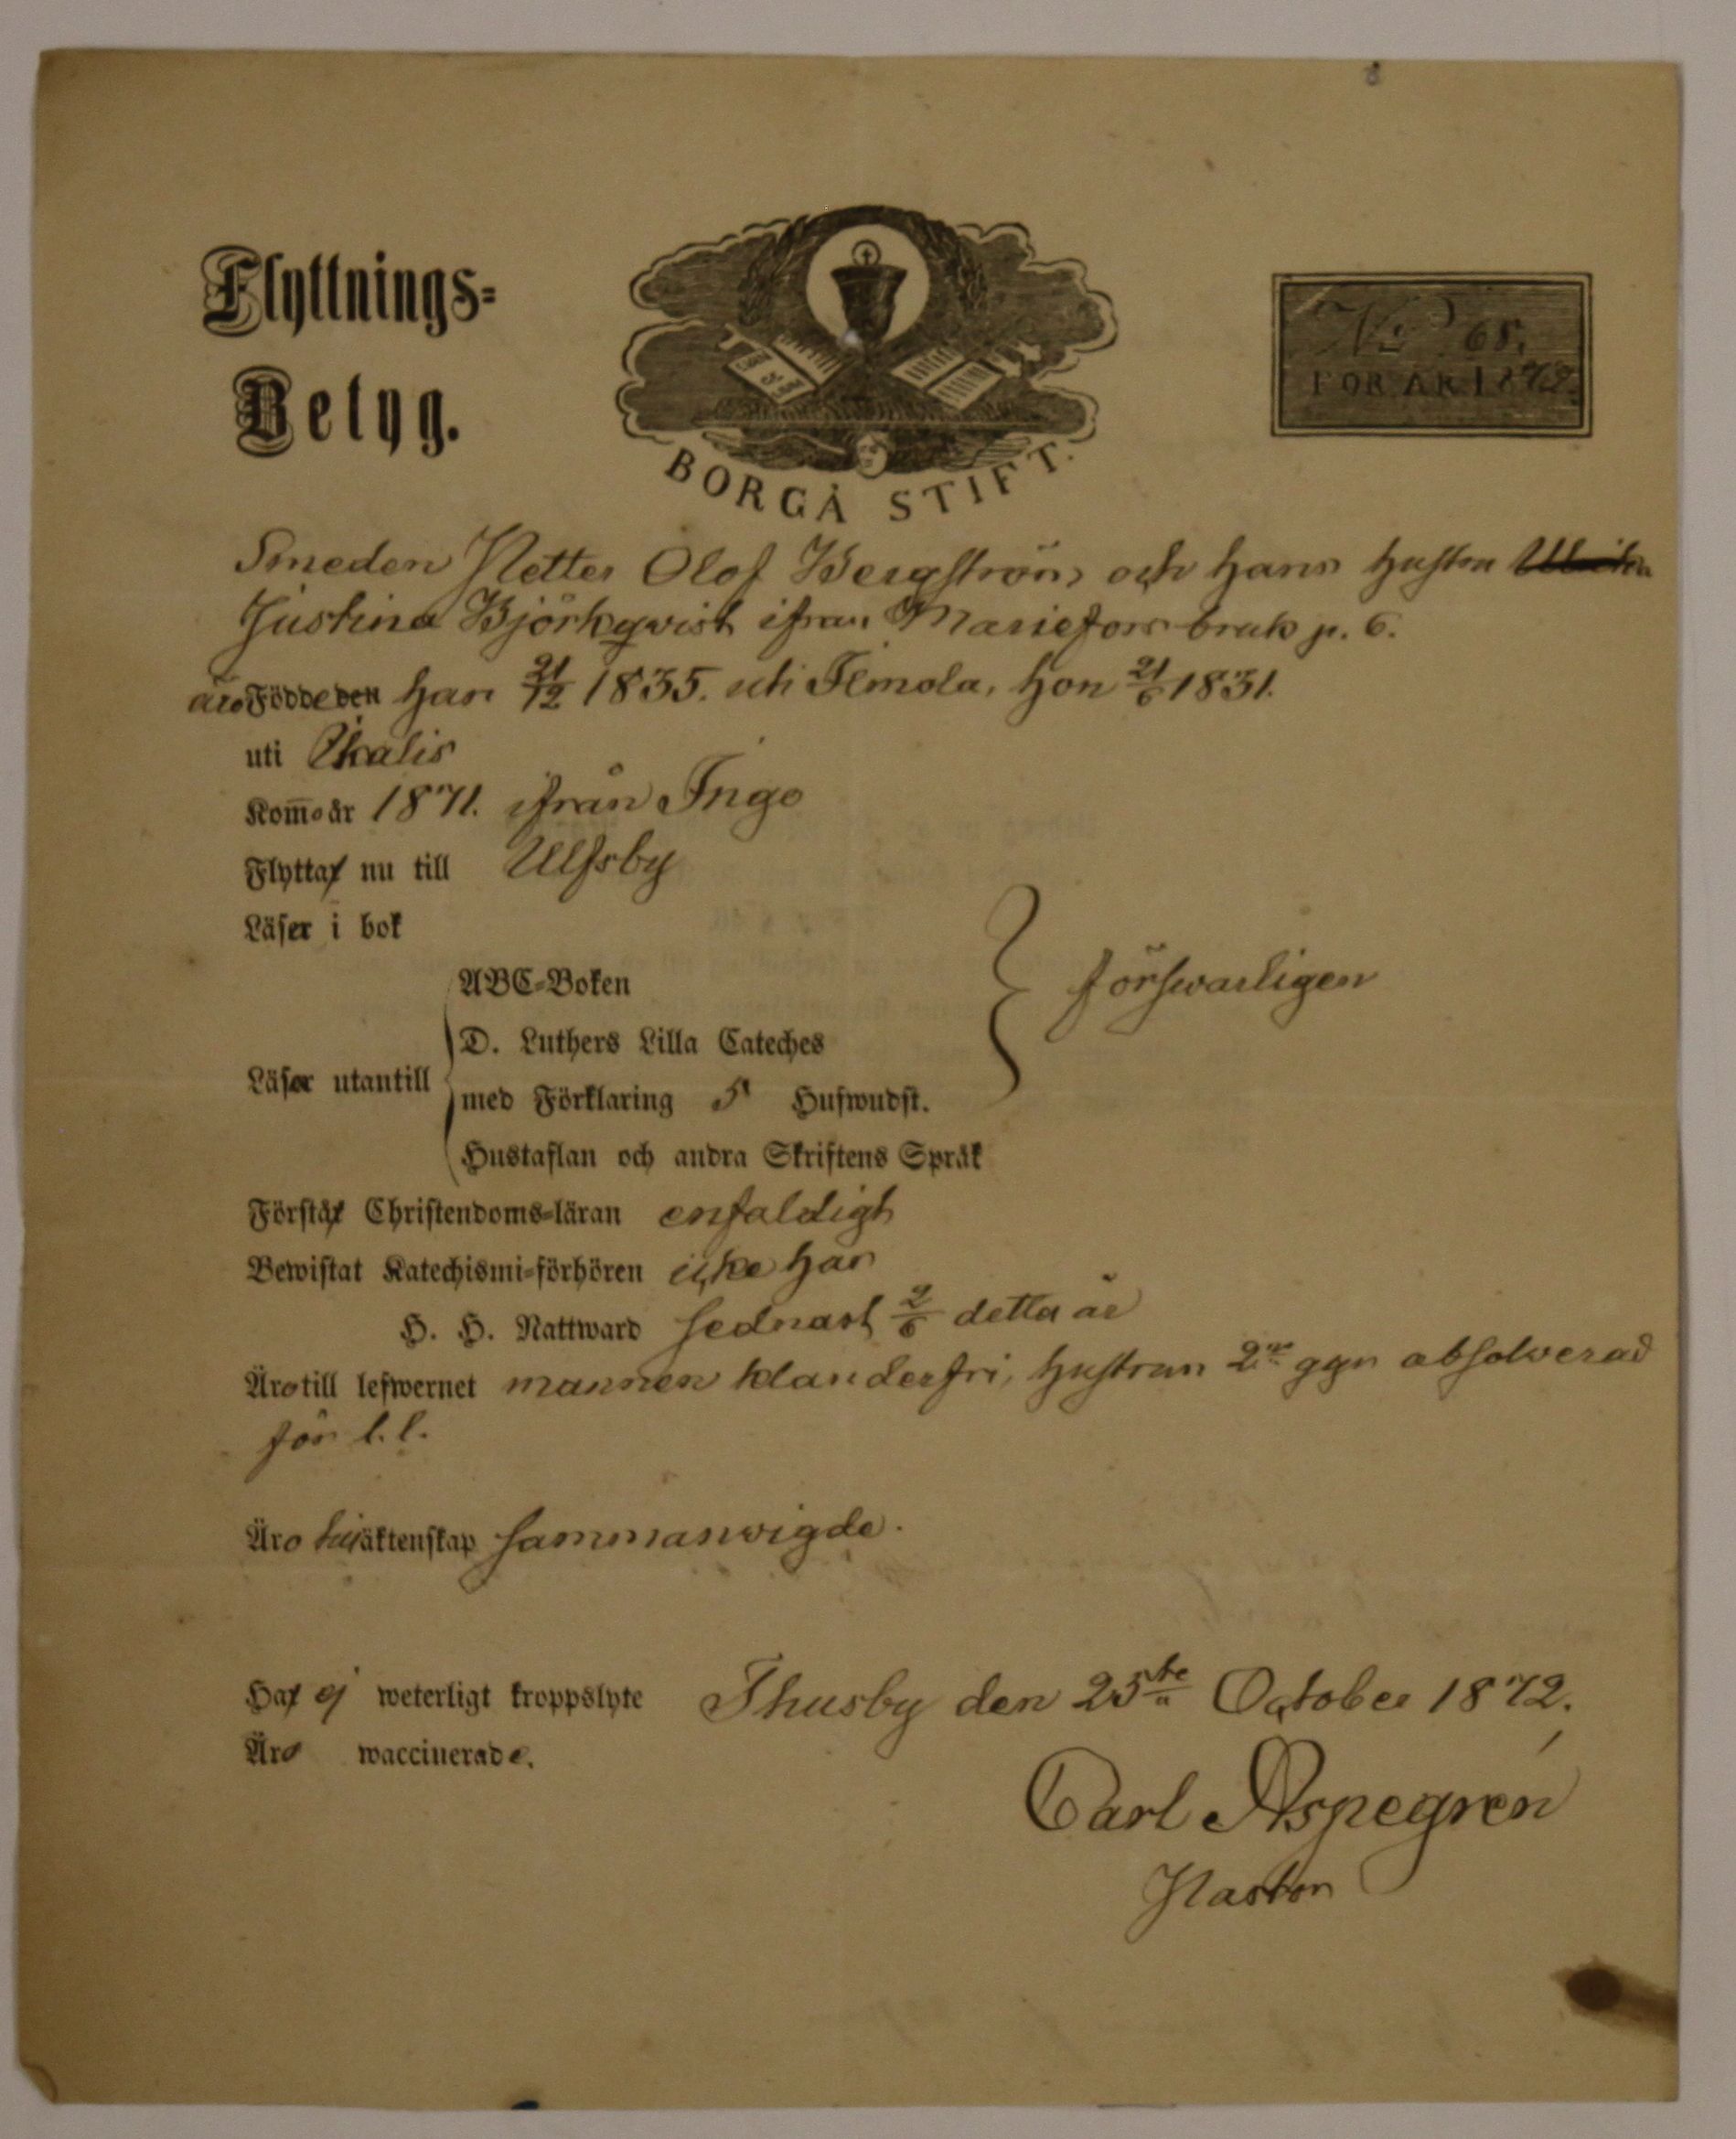 Flyttnings-
Betyg.
BORGÅ STIFT.
No 68.
FÖR ÅR 1872.
Smeden Petter Olof Bergström och hans hustru
Justina Björkqvist ifrån Mariefors bruk p. 6.
äro Födde den han 21/12 1835. uti Ilmola, hon 21/6 1831.
uti Ikalis
Kommo år 1871. ifrån Ingo
Flytta nu till Ulfsby
Läser i bok
ABC-Boken
D. Luthers Lilla Cateches
Läser utantill
med Förklaring 5 Hufwudst.
Hustaflan och andra Skriftens Språk
förswarligen
Förstå Christendoms-läran enfaldigt
Bewistat Katechismi-förhören icke här
H. H. Nattward sednast 2/6 detta år
Äro till lefwernet mannen klanderfri, hustrun 2ne ggr absolverad
för l. l.
Äro äktenskap sammanvigde.
Ha ej weterligt kroppslyte
Äro waccinerade.
Thusby den 25te October 1872.
Carl Aspegrén
Pastor